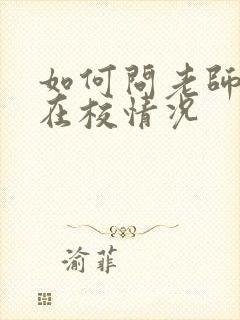 如何問老師
在校情况
渝菲